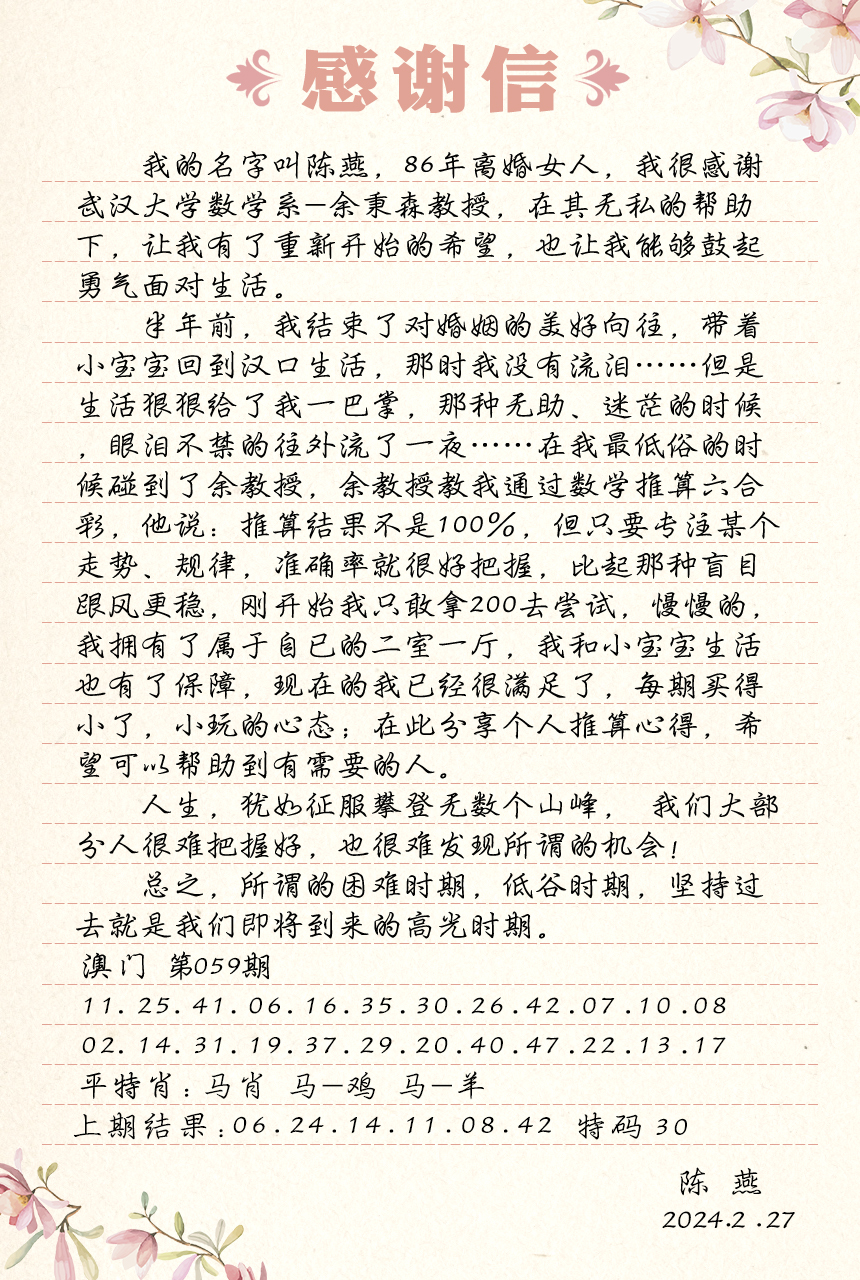 感谢信
我的名字叫陈燕，86年离婚女人，我很感谢
武汉大学数学系—余秉森教授，在其无私的帮助
下，让我有了重新开始的希望，也让我能够鼓起
勇气面对生活。
半年前，我结束了对婚姻的美好向往，带着
小宝宝回到汉口生活，那时我没有流泪……但是
生活狠狠给了我一巴掌，那种无助、迷茫的时候
，眼泪不禁的往外流了一夜……在我最低俗的时
候碰到了余教授，余教授教我通过数学推算六合
彩，他说：推算结果不是100%，但只要专注某个
走势、规律，准确率就很好把握，比起那种盲目
跟风更稳，刚开始我只敢拿200去尝试，慢慢的，
我拥有了属于自已的二室一厅，我和小宝宝生活
也有了保障，现在的我已经很满足了，每期买得
小了，小玩的心态；在此分享个人推算心得，希
望可以帮助到有需要的人。
人生，犹如征服攀登无数个山峰， 我们大部
分人很难把握好，也很难发现所谓的机会！
总之，所谓的困难时期，低谷时期，坚持过
去就是我们即将到来的高光时期。
澳门 第059期
11.25.41.06.16.35.30.26.42.07.10.08
02.14.31.19.37.29.20.40.47.22.13.17
平特肖：马肖 马—鸡 马—羊
上期结果：06.24.14.11.08.42 特码 30
陈 燕
2024.2.27